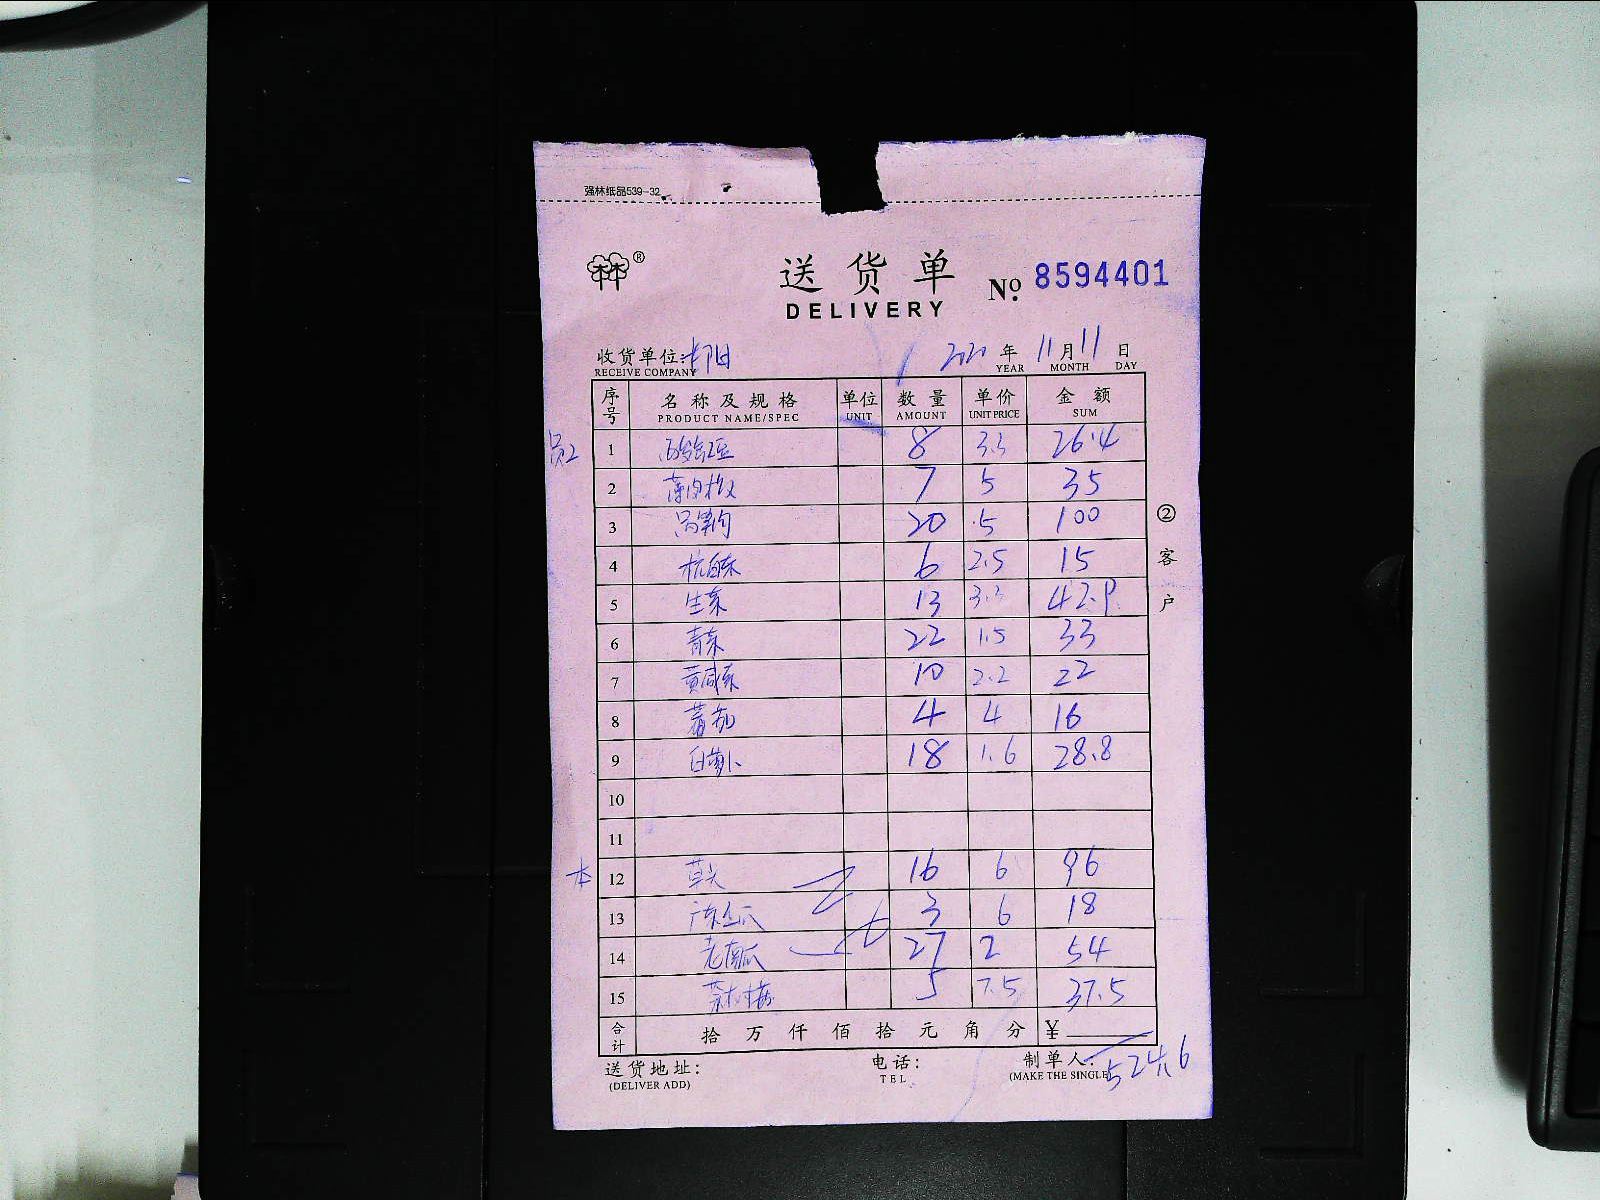 强林纸品539-32
®
送货单 № 8594401
DELIVERY
收货单位: 2020 年 11 月 11 日
RECEIVE COMPANY YEAR MONTH DAY
序号 名称及规格 单位 数量 单价 金额
PRODUCT NAME/SPEC UNIT AMOUNT UNIT PRICE SUM
员工 1 酸豇豆 8 3.3 26.4
2 7 5 35
3 20 5 100
4 杭白菜 6 2.5 15
5 生菜 13 3.3 42.9
6 青菜 22 1.5 33
7 黄咸菜 10 2.2 22
8 蕃茄 4 4 16
9 白萝卜 18 1.6 28.8
10
11
本 12 草头 16 6 96
13 3 6 18
14 老南瓜 27 2 54
15 5 7.5 37.5
合计 拾 万 仟 佰 拾 元 角 分 ¥
524.6
送货地址: 电话: 制单人:
(DELIVER ADD) TEL (MAKE THE SINGLE)
②客户